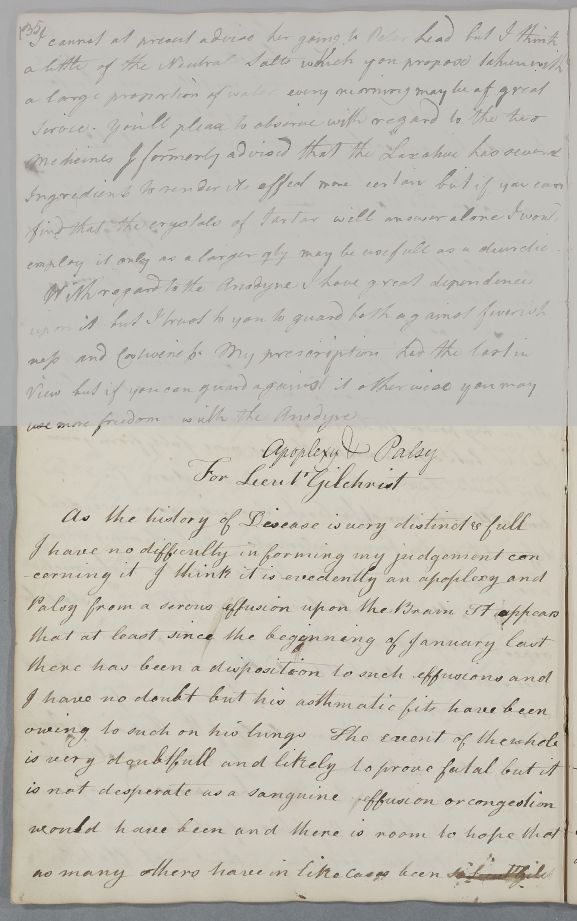 (35)
I cannot at present advise her going to Peter head but I think
a little of the Neutral Salts which you propose taken with
a large proportion of water every morning may be of great
Service. You'll please to observe with regard to the two
Medicines I formerly advised that the Laxative has several
Ingredients to render its effect more certain but if you can
find that the crystals of tartar will answer alone I wou'd
employ it only as a larger qty may be usefull as a diuretic
With regard to the Anodyne I have great dependence
upon it but I trust to you to guard both against feverish
ness and Costiveness. My prescription had the last in
View but if you can guard against it otherwise you may
use more freedom with the Anodyne
Apoplexy & Palsy
For Lieut Gilchrist
As the history of Disease is very distinct & full
I have no difficulty in forming my judgement con
cerning it I think it is evedently an apoplexy and
Palsy from a serous effusion upon the Brain It appears
that at least since the begynning of January last
there has been a disposition to such effusions and
I have no doubt but his asthmatic fits have been
owing to such on his lungs The event of the whole
is very doubtfull and likely to prove fatal but it
is not desperate as a sanguine effusion or congestion
would have been and there is room to hope that
as many others have in like cases been